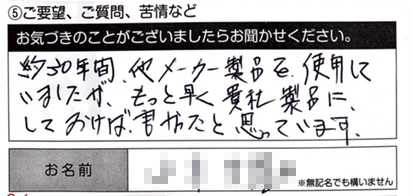 ⑤ご要望、ご質問、苦情など
お気づきのことがございましたらお聞かせください。
約30年間、他メーカー製品を使用して
いましたが、もっと早く貴社製品に、
しておけば、良かったと思っています。
お名前
※無記名でも構いません